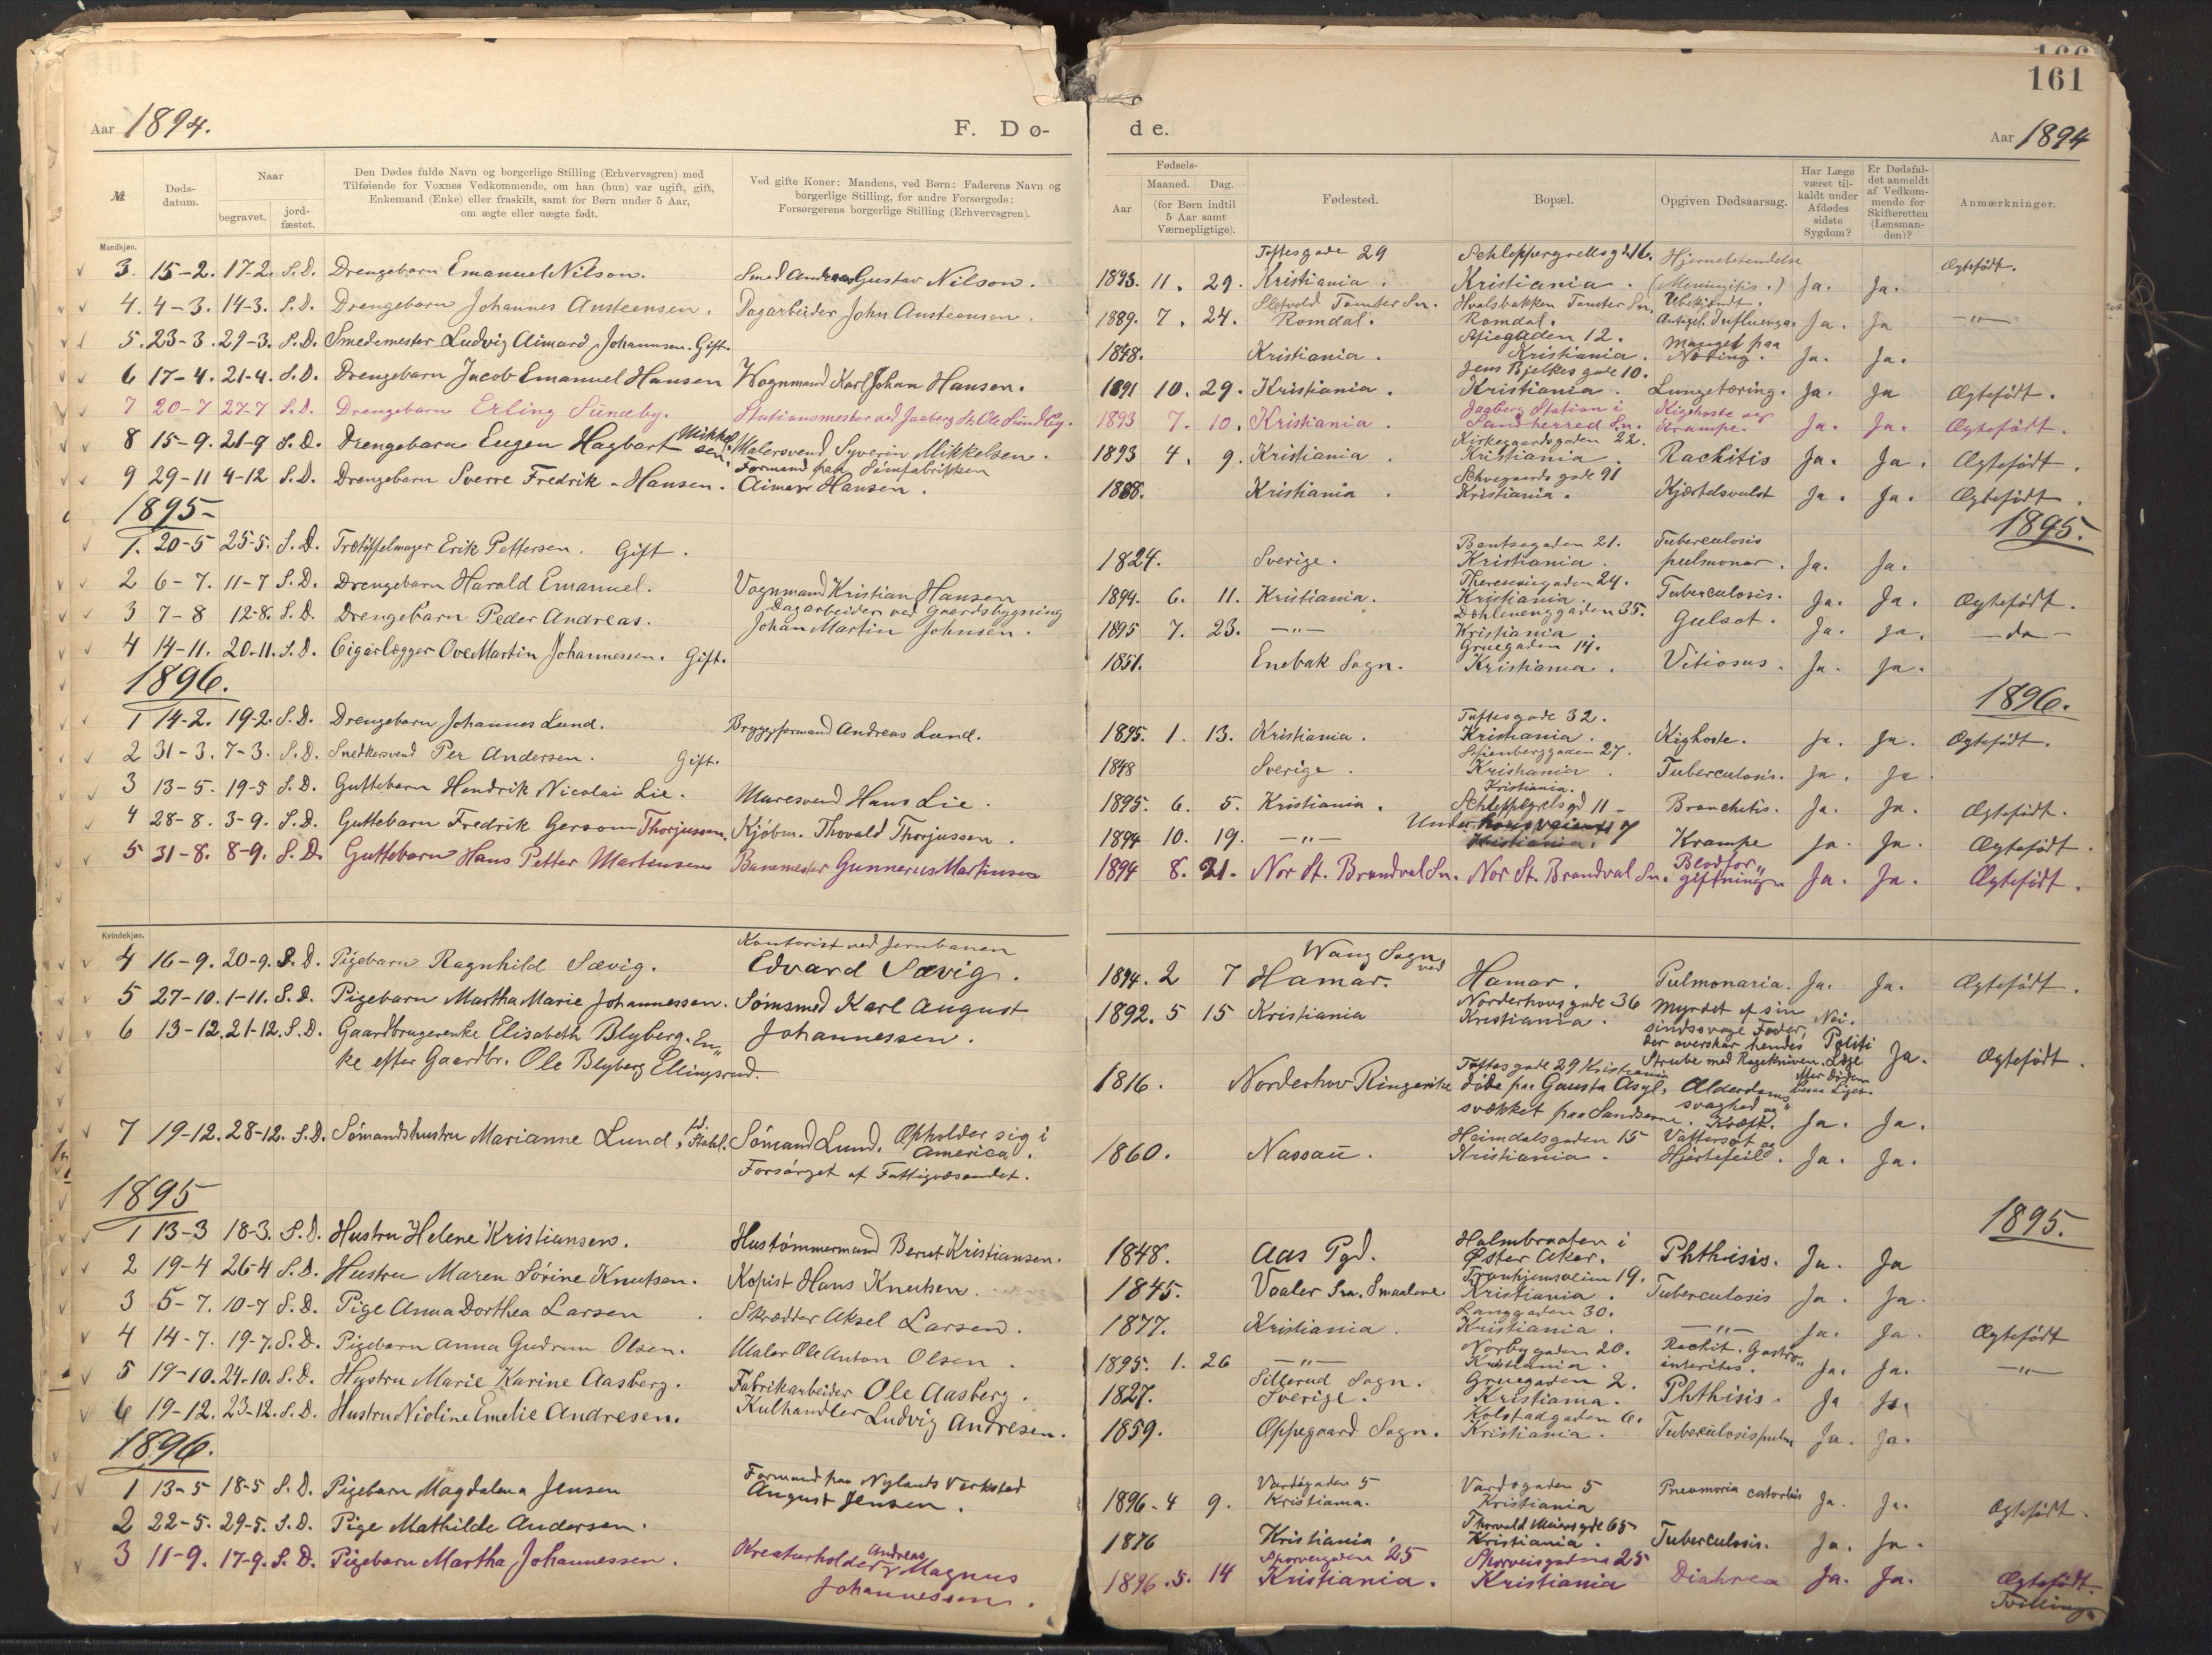 166
161
Aar 1894.
F. Dø-
de.
Aar 1894
№
Døds-
datum.
Naar
begravet.
jord-
fæstet.
Den Dødes fulde Navn og borgerlige Stilling (Erhvervsgren) med
Tilføiende for Voxnes Vedkommende, om han (hun) var ugift, gift,
Enkemand (Enke) eller fraskilt, samt for Børn under 5 Aar,
om ægte eller uægte født.
Ved gifte Koner: Mandens, ved Børn: Faderens Navn og
borgerlige Stilling, for andre Forsørgede:
Forsørgerens borgerlige Stilling (Erhvervsgren).
Fødsels-
Aar.
Maaned.
Dag.
(for Børn indtil
5 Aar samt
Værnepligtige).
Fødested.
Bopæl.
Opgiven Dødsaarsag.
Har Læge
været til-
kaldt under
Afdødes
sidste
Sygdom?
Er Dødsfal-
det anmeldt
af Vedkom-
mende for
Skifteretten
(Lensman-
den)?
Anmærkninger.
Mandkjøn.
3. 15-2. 17-2. S.D. Drengebarn Emanuel Nilson. Smed Andreas Gustav Nilson.
4. 4-3. 14-3. S.D. Drengebarn Johannes Austeensen. Dagarbeider John Austeensen.
5. 23-3. 29-3. S.D. Smedemester Ludvig Aimard Johannsen. Gift.
6 17-4. 21-4. S.D. Drengebarn Jacob Emanuel Hansen Vognmand Karl Johan Hansen.
7 20-7 27-7 S.D. Drengebarn Erling Sundby. Stationsmester ved Jaaberg St. Ole Sundby.
8 15-9. 21-9 S.D. Drengebarn Eugen Hagbart Mikkel-
sen. Malersvend Syverin Mikkelsen.
9 29-11 4-12 S.D. Drengebarn Sverre Fredrik Hansen. Formand paa Limfabrikken
Aimar Hansen.
1895-
1. 20-5 25-5. S.D. Trætøffelmager Erik Pettersen. Gift.
2 6-7. 11-7 S.D. Drengebarn Harald Emanuel. Vognmand Kristian Hansen
3 7-8 12-8. S.D. Drengebarn Peder Andreas. Dagarbeider ved Gaardsbygning
Johan Martin Johnsen.
4 14-11. 20-11. S.D. Cigarlægger Ove Martin Johannessen. Gift.
1896.
1 14-2. 19-2. S.D. Drengebarn Johannes Lund. Bryggeformand Andreas Lund.
2 31-3. 7-3. S.D. Snedkersvend Per Andersen. Gift.
3 13-5. 19-5 S.D. Guttebarn Hendrik Nicolai Lie. Muresvend Hans Lie.
4 28-8. 3-9. S.D. Guttebarn Fredrik Gersom Thorjussen. Kjøbm. Thovald Thorjussen.
5 31-8. 8-9. S.D. Guttebarn Hans Petter Martinsen Banemester Gunnerus Martinsen
Kvindekjøn.
4 16-9. 20-9. S.D. Pigebarn Ragnhild Sævig. Kontorist ved Jernbanen
Edvard Sævig.
5 27-10. 1-11. S.D. Pigebarn Martha Marie Johannessen. Sømsmed Karl August
Johannessen.
6 13-12. 21-12. S.D. Gaardbrugerenke Elisabeth Blyberg. En-
ke efter Gaardbr. Ole Blyberg Ellingsrud.
7 19-12. 28-12. S.D. Sømandshustru Marianne Lund, f. Stahl. Sømand Lund. Opholder sig i
America.
Forsørget af Fattigvæsendet.
1895
1 13-3 18-3. S.D. Hustru Helene Kristiansen. Hustømmermand Bernt Kristiansen.
2 19-4 26-4 S.D. Hustru Maren Sørine Knutsen. Kopist Hans Knutsen.
3 5-7. 10-7 S.D. Pige Anna Dorthea Larsen Skrædder Aksel Larsen.
4 14-7. 19-7. S.D. Pigebarn Anna Gudrun Olsen. Maler Ole Anton Olsen.
5 19-10. 24-10. S.D. Hustru Marie Karine Aasberg. Fabrikarbeider Ole Aasberg.
6 19-12. 23-12. S.D. Hustru Nioline Emelie Andresen. Kulhandler Ludvig Andresen.
1896.
1 13-5 18-5 S.D. Pigebarn Magdalena Jensen Formand paa Nylands Værksted
August Jensen.
2 22-5. 29-5. S.D. Pige Mathilde Andersen.
3 11-9. 17-9. S.D. Pigebarn Martha Johannessen. Kreaturholder Andreas Magnus
Johannessen.
Toftesgade 29 Schleppegrellsgd. 16. Hjernebetændelse
1893. 11. 29. Kristiania. Kristiania. (Meningitis.) Ja. Ja. Ægtefødt.
Sletvold Tomter Sn. Hvalsbakken Tomter Sn. Ubekjendt.
1889. 7. 24. Romdal. Romdal. Antagel. Influenza. Ja. Ja —"—
1848. Kristiania. Stiegaden 12.
Kristiania. Mangel paa
Næring. Ja. Ja.
1891 10. 29. Kristiania. Jens Bjelkes gade 10.
Kristiania. Lungetæring. Ja. Ja Ægtefødt.
1893 7. 10. Kristiania. Jaaberg Station i
Sandherred Sn. Kighoste og
Krampe. Ja. Ja. Ægtefødt.
1893 4. 9. Kristiania. Kirkegaardsgaden 22.
Kristiania. Rachitis Ja. Ja. Ægtefødt.
1888. Kristiania. Schwegaards gade 91
Kristiania. Kjærtelsvulst Ja. Ja. Ægtefødt.
1895.
1824. Sverige. Bentsegaden 21.
Kristiania. Tuberculosis
pulmonar. Ja. Ja.
1894. 6. 11. Kristiania. Theresesgaden 24.
Kristiania. Tuberculosis. Ja. Ja. Ægtefødt.
1895 7. 23. —"— Dæhlenenggaden 35.
Kristiania. Gulsot. Ja. Ja. —do—
1851. Enebak Sogn. Gruegaden 14.
Kristiania. Vitiosus. Ja. Ja.
1896.
1895. 1. 13. Kristiania. Toftesgade 32.
Kristiania. Kighoste. Ja. Ja. Ægtefødt.
1848 Sverige. Stjenberggaden 27.
Kristiania. Tuberculosis. Ja. Ja.
1895. 6. 5. Kristiania. Kristiania.
Schleppegrelsgd 11 - Bronchitis. Ja. Ja. Ægtefødt.
1894 10. 19. —"— Under
Kristiania. Krampe Ja. Ja. Ægtefødt.
1894 8. 21. Nor St. Brandval Sn. Nor St. Brandval Sn. Blodfor-
giftning. Ja. Ja. Ægtefødt.
1894. 2 7 Wang Sogn
ved
Hamar. Hamar. Pulmonaria. Ja. Ja. Ægtefødt.
1892. 5 15 Kristiania Norderhovsgade 36
Kristiania. Myrdet af sin
sindssvage Fader,
der overskar hendes
Strube med Ragekniven. Nei.
Politi
Læge
Ja. Ægtefødt.
1816. Norderhov Ringerike Toftesgade 29 Kristiania
døde paa Gausta Asyl,
svækket paa Sandserne. Alderdoms-
svaghed og
Kræft. Ja. Ja.
1860. Nassau. Heimdalsgaden 15
Kristiania. Vattersot og
Hjertefeil. Ja. Ja.
1895.
1848. Aas Pgd. Holmbraaten i
Øster Aker. Phthisis. Ja. Ja
1845. Vaaler Sn. Smaalene. Tronhjemsveien 19.
Kristiania. Tuberculosis Ja. Ja.
1877. Kristiania. Langgaden 30.
Kristiania. —"— Ja. Ja. Ægtefødt
1895. 1. 26 —"— Norbygaden 20.
Kristiania. Rachit. Gastro-
interites. Ja. Ja. —"—
1827. Sillerud Sogn.
Sverige. Gruegaden 2.
Kristiania. Phthisis. Ja Ja.
1859. Oppegaard Sogn. Kolstadgaden 6.
Kristiania. Tuberculosis pulm Ja. Ja.
1896-4 9. Vardøgaden 5
Kristiania. Vardøgaden 5
Kristiania Pneumonia catarhis Ja. Ja. Ægtefødt.
1876 Kristiania. Thorvald Meiersgde 65
Kristiania. Tuberculosis. Ja. Ja.
1896. 5. 14 Sporveisgaden 25
Kristiania. Sporveisgaden 25
Kristiania Diahrea Ja. Ja. Ægtefødt.
Tvilling.